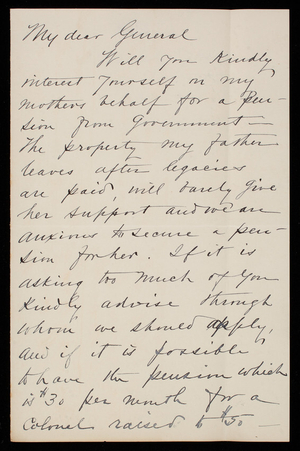 My dear General
Will you kindly
interest yourself in my
mothers behalf for a Pen-
sion from Government —
The property my father
leaves after legacies
are paid, will barely give
her support and we are
anxious to secure a pen-
sion for her. If it is
asking too much of you
Kindly advise through
whom we should apply,
and if it is possible
to have the pension which
is $30 per month for a
Colonel raised to $50 —